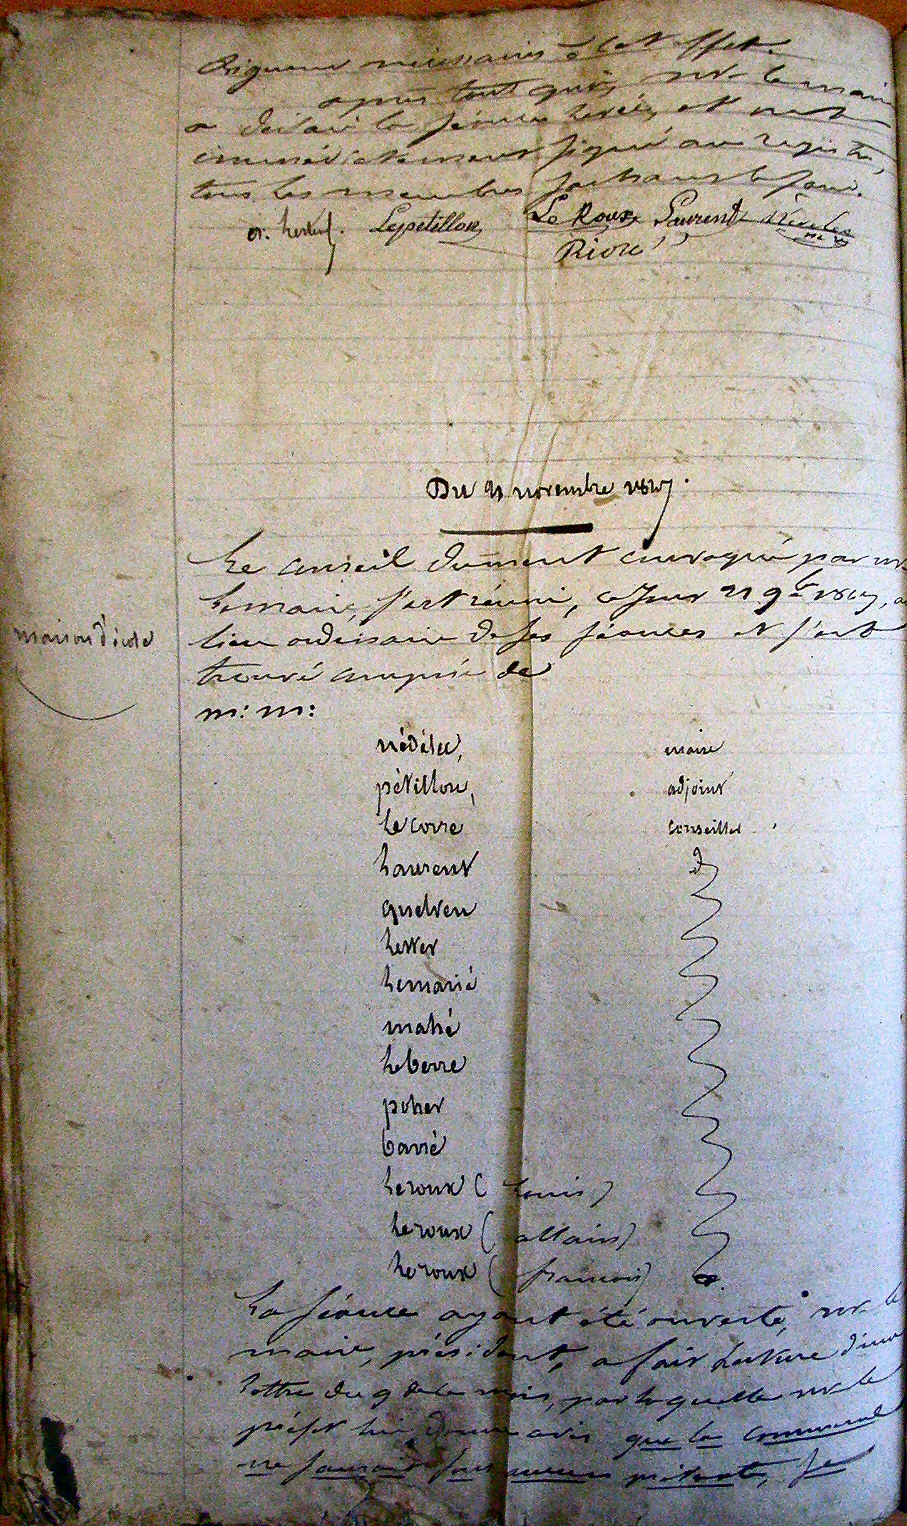 Rigueur nécessaires à cet effet.
après tout quoi, mr le maire
a déclaré la séance levée, et ont
immédiatement signé au registre,
tous les membres sachant le faire.
Lepetillon Le Roux Laurent Nédélec
Rioré
Du 21 novembre 1847.
Le conseil dument convoqué par mr
le maire, s'est réuni, ce jour 21 9bre 1847, au
maison d'école
lieu ordinaire de ses séances et s'est
trouvé composé de
m: m:
nédélec, maire
pétillon, adjoint
le corre conseiller
Laurent d
quelven
herrer
Lemarié
mahé
Le berre
poher
barré
Leroux (Louis)
Le roux (allain)
Le roux (francois)
La séance ayant été ouverte, mr le
maire, président, a fait lecture d'une
lettre du 9 de ce mois, par laquelle mr le
préfet lui donne avis que la commune
ne saurait sous aucun prétexte, se